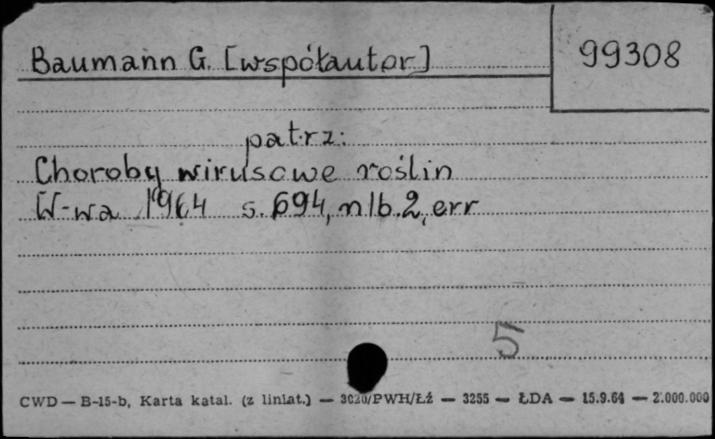 Baumann G. [współautor]
99308
patrz:
Choroby wirusowe roślin
W-wa 1964 s. 694, nlb. 2, err
5
CWD — B-15-b, Karta katal. (z liniat.) — 3020/PWH/Łź — 3255 — ŁDA — 15.9.64 — 2.000.000